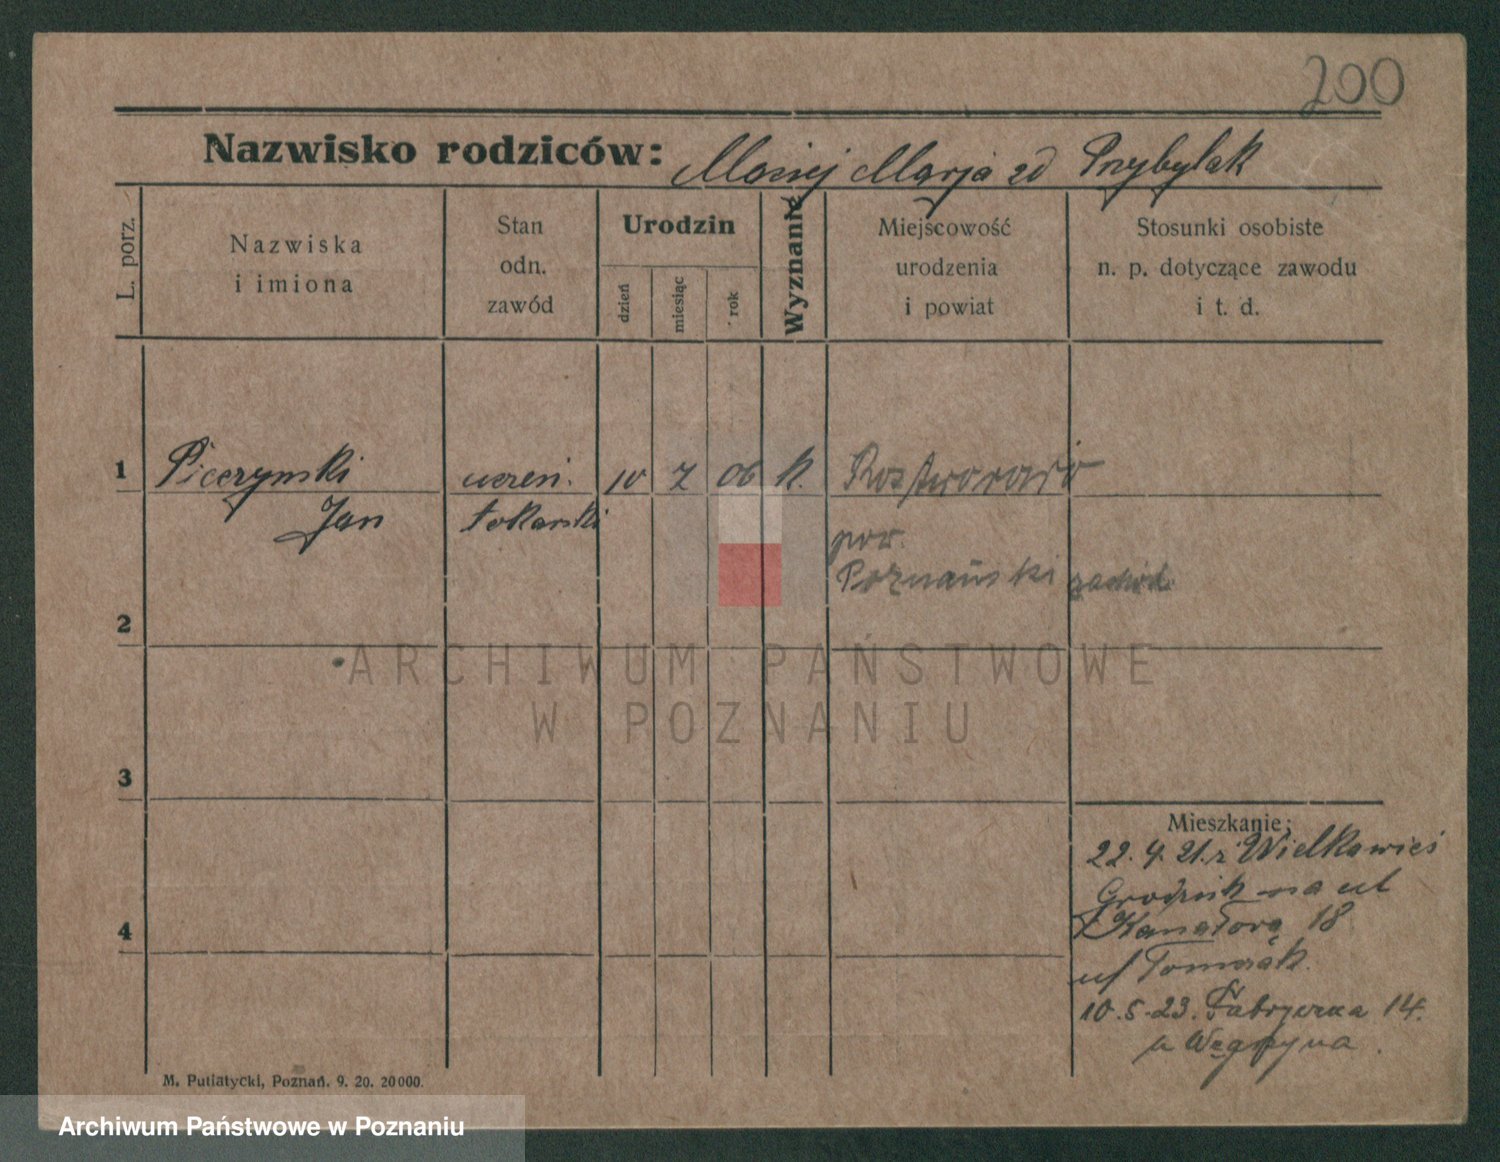 200
Nazwisko rodziców: Maciej Marja zd Przybylak
L. porz.
Nazwiska
i imiona
Stan
odn.
zawód
Urodzin
dzień
miesiąc
rok
Wyznanie
Miejscowość
urodzenia
i powiat
Stosunki osobiste
n. p. dotyczące zawodu
i t. d.
1 Pieczynski uczeń 10 7 06 k. Rostworowo
Jan tokarski
pow.
Poznański zachód.
2
3
4
ARCHIWUM PAŃSTWOWE
W POZNANIU
Mieszkanie:
22. 4. 21. z Wielkawieś
na ul
Kanałową 18
u/ Tomczak.
10. 5. 23. Fabryczna 14.
u Węgrzyna.
M. Putiatycki, Poznań. 9. 20. 20000.
Archiwum Państwowe w Poznaniu